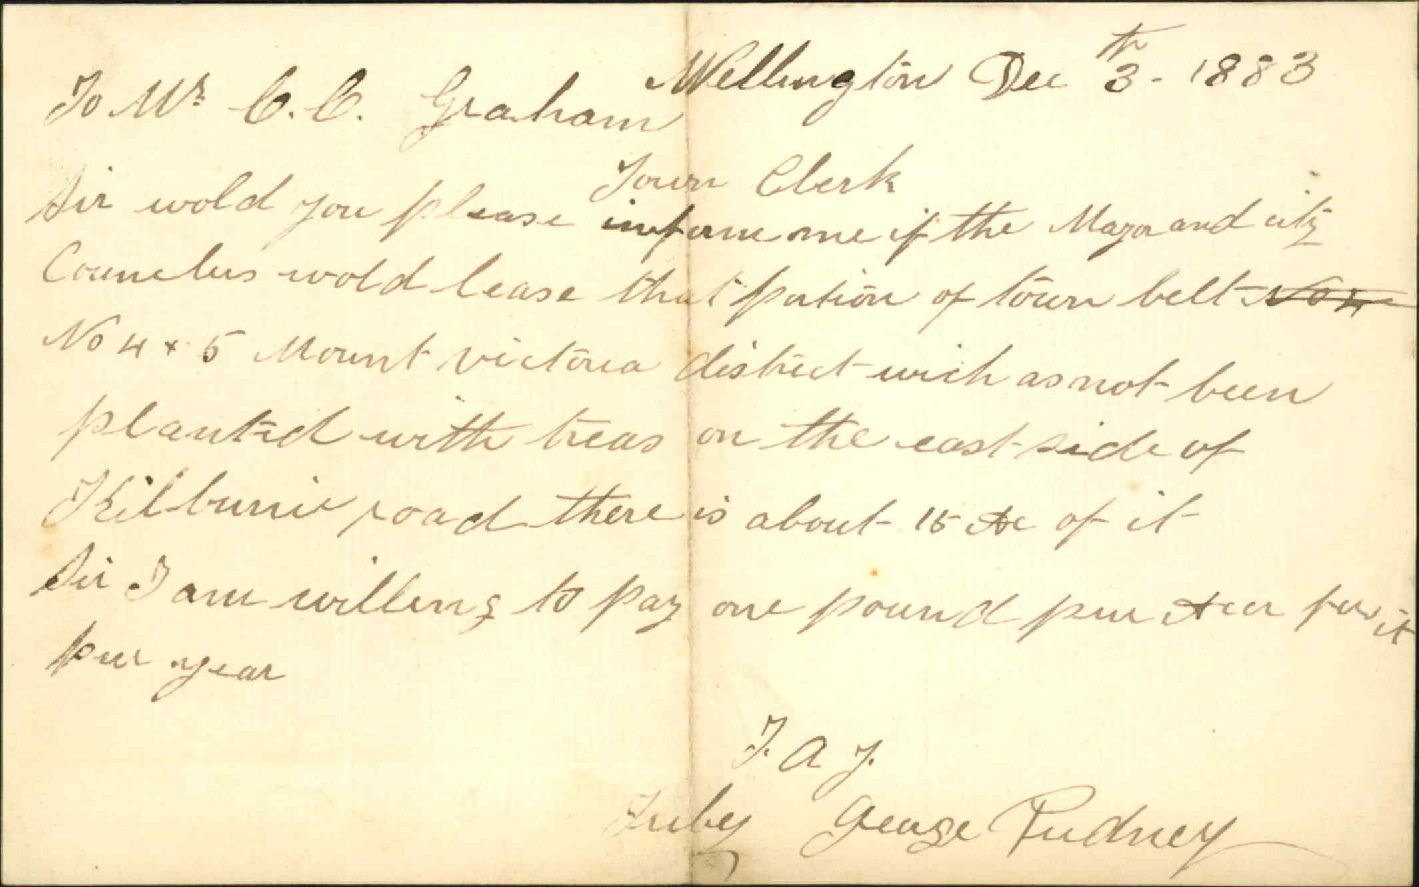 Wellington Dec 3th - 1883
To Mr C. C. Graham
Town Clerk
Sir wold you please inform me if the Mayor and city
Councelus wold lease that portion of town belt No 4
No 4 + 5 Mount victoria district wich as not been
planted with treas on the east side of
Kilburnie road there is about 15 Ac of it
Sir I am willing to pay one pound pur Acur fur it
pur year
George Pudney